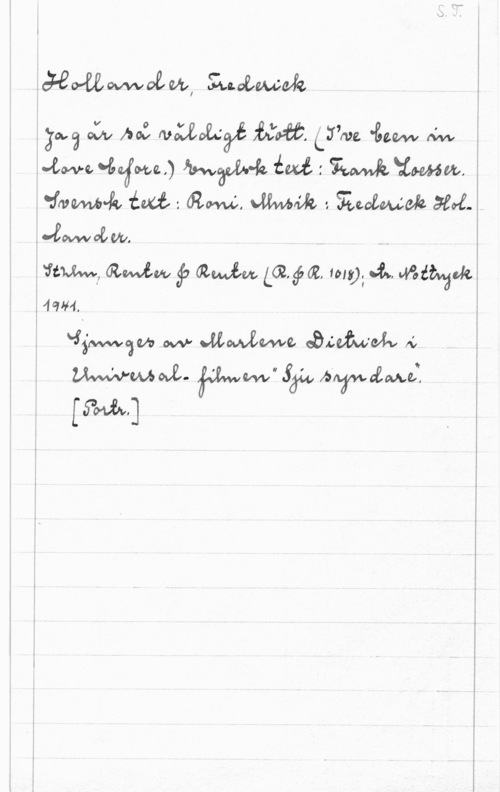 S. T.
Hollander, Frederick
Jag är så väldigt trött. (I've been in
love before.) Engelsk text : Frank Loesser.
Svensk text : Roni. Musik : Frederick Hol-
lander.
Sthlm, Reuter & Reuter (R. & R. 1018); tr. Nottryck
1941.
Sjunges av Marlene Dietrich i
Universal-filmen "Sju syndare".
[Portr.]